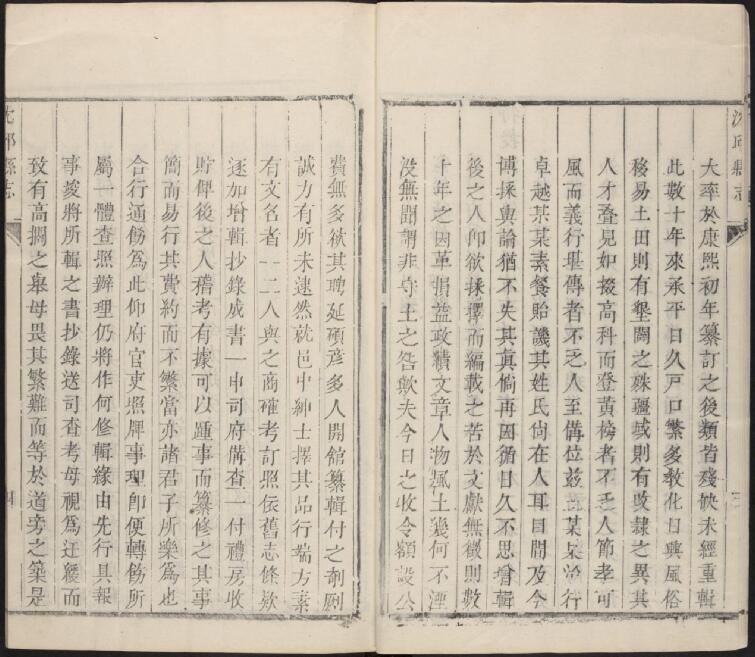 沈邱縣志
大率於康熙初年纂訂之後類皆殘缺未經重輯
此數十年來承平日久戸口繁多教化日興風俗
移易土田則有墾闢之殊疆域則有改隸之異其
人才疊見如掇高科而登黃榜者不乏人節孝可
風而義行堪傳者不乏人至備位茲土某某洽行
卓越某某素餐貽譏其姓氏尙在人耳目間及今
博採輿論猶不失其真倘再因循日久不思增輯
後之人卽欲採擇而編載之苦於文獻無徵則數
十年之因革損益政績文章人物風土幾何不湮
没無聞謂非守土之咎歟夫今日之收令額設公
三
費無多欲其聘延碩彥多人開館纂輯付之剞劂
誠力有所未逮然就邑中紳士擇其品行端方素
有文名者一二人與之商確考訂照依舊志條欵
逐加增輯抄錄成書一申司府備查一付禮房收
貯俾後之人稽考有據可以踵事而纂修之其事
簡而易行其費約而不繁當亦諸君子所樂爲也
合行通飭爲此仰府官吏照牌事理卽便轉飭所
屬一體查照辦理仍將作何修輯緣由先行具報
事竣將所輯之書抄錄送司查考毋視爲迂緩而
致有高擱之舉毋畏其繁難而等於道旁之築是
沈邱縣志
四